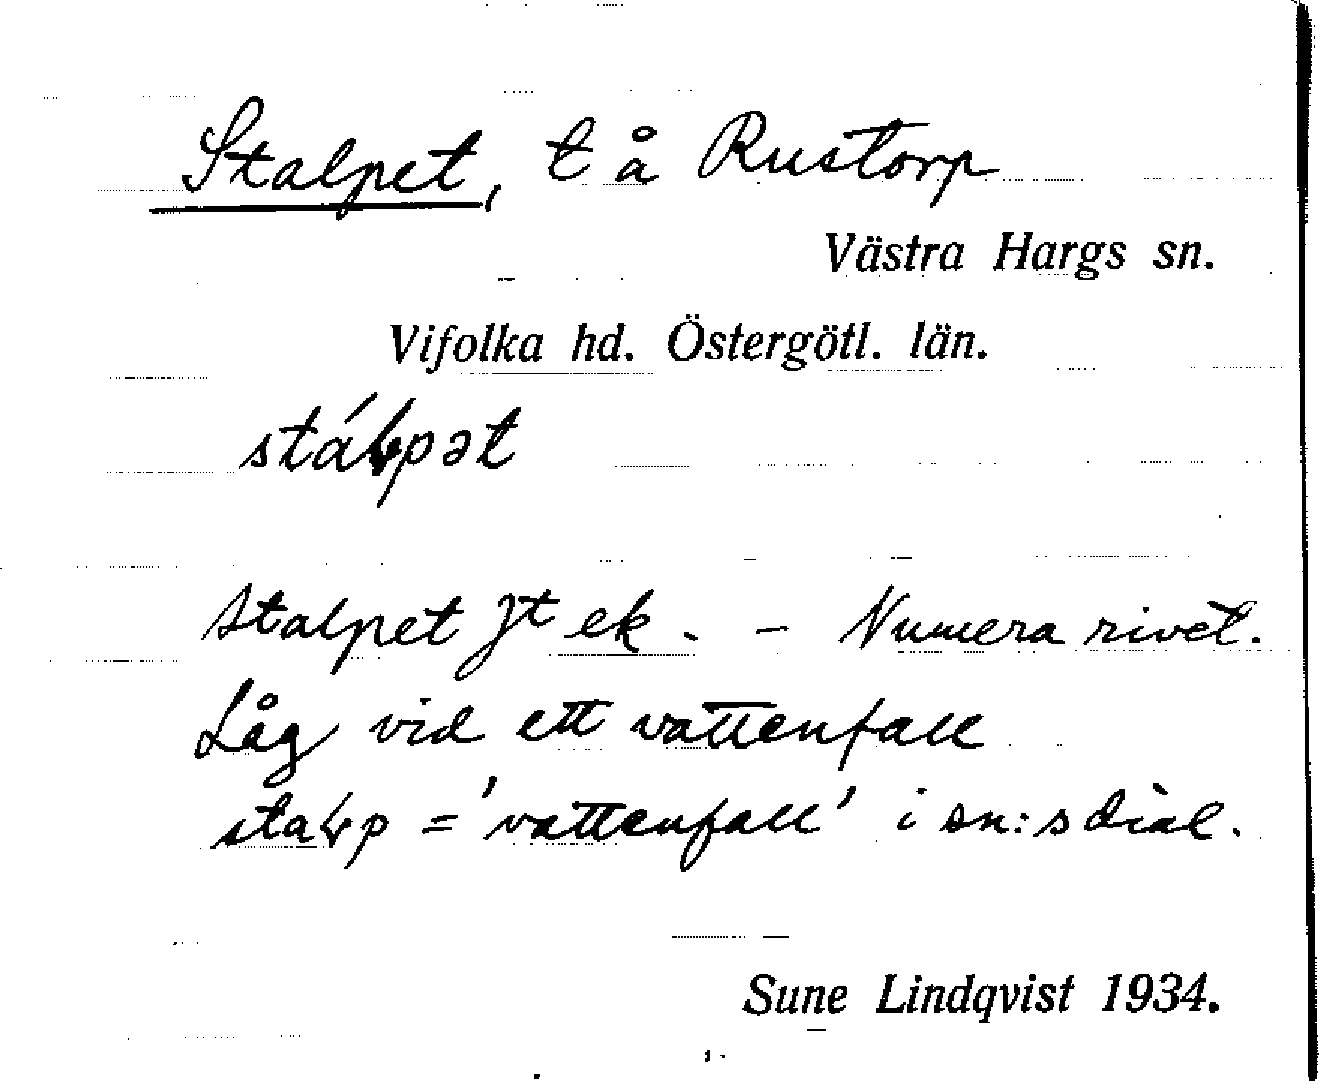 Stalpet, t å Rustorp
Västra Hargs sn.
Vifolka hd. Östergötl. län.
stáɽpət
Stalpet Jt ek. - Numera rivet.
Låg vid ett vattenfall
staɽp = 'vattenfall' i sn:s dial.
Sune Lindqvist 1934.